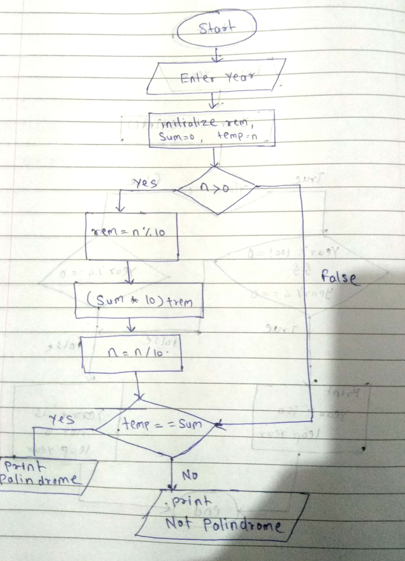 Start
Enter Year
initialize rem,
Sum=0, temp=n
n>0
yes
rem=n%10
false
(Sum * 10)+rem
n=n/10.
temp==Sum
Yes
print
Palindrome
No
print
Not Polindrome